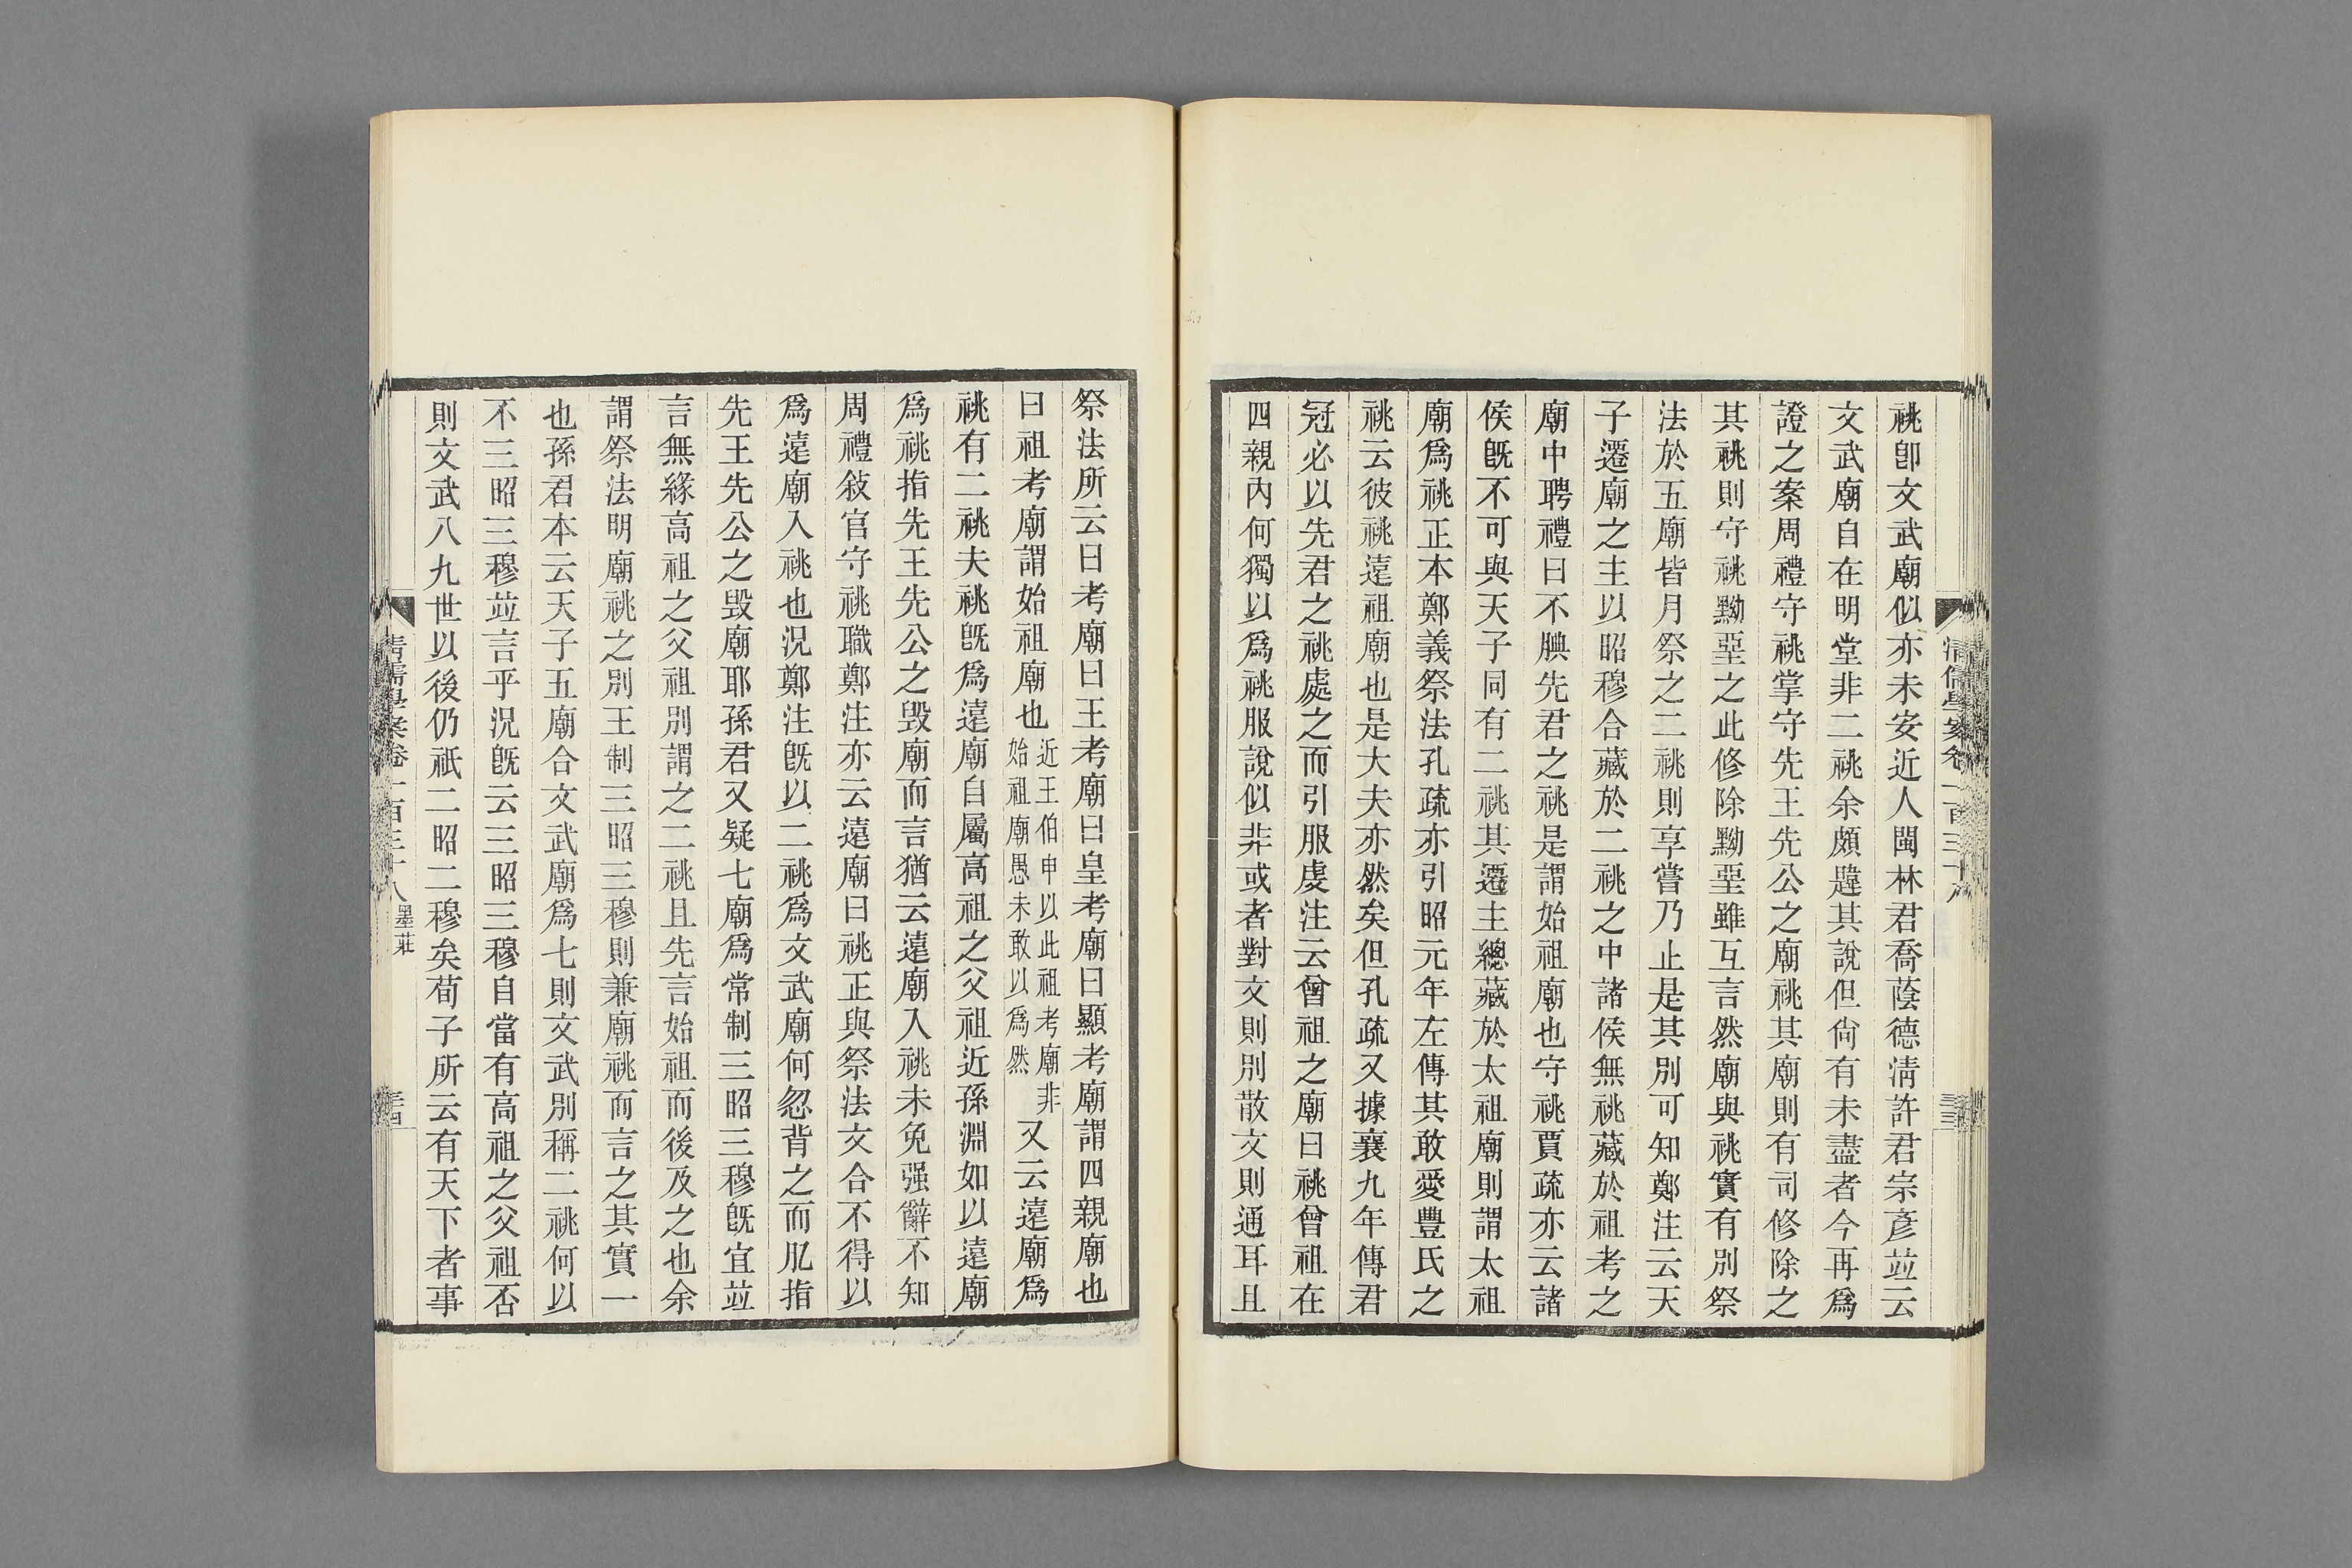 祧卽文武廟似亦未安近人閩林君喬蔭德淸許君宗彥竝云
文武廟自在明堂非二祧余頗韙其說但尙有未盡者今再爲
證之案周禮守祧掌守先王先公之廟祧其廟則有司修除之
其祧則守祧黝堊之此修除黝堊雖互言然廟與祧實有別祭
法於五廟皆月祭之二祧則享嘗乃止是其別可知鄭注云天
子遷廟之主以昭穆合藏於二祧之中諸侯無祧藏於祖考之
廟中聘禮曰不腆先君之祧是謂始祖廟也守祧賈疏亦云諸
侯旣不可與天子同有二祧其遷主總藏於太祖廟則謂太祖
廟爲祧正本鄭義祭法孔疏亦引昭元年左傳其敢愛豐氏之
祧云彼祧遠祖廟也是大夫亦然矣但孔疏又據襄九年傳君
冠必以先君之祧處之而引服虔注云曾祖之廟曰祧曾祖在
四親內何獨以爲祧服說似非或者對文則別散文則通耳且
清儒學案卷一百三十八
三三
祭法所云曰考廟曰王考廟曰皇考廟曰顯考廟謂四親廟也
曰祖考廟謂始祖廟也近王伯申以此祖考廟非始祖廟愚未敢以爲然又云遠廟爲
祧有二祧夫祧旣爲遠廟自屬高祖之父祖近孫淵如以遠廟
爲祧指先王先公之毀廟而言猶云遠廟入祧未免强辭不知
周禮敍官守祧職鄭注亦云遠廟曰祧正與祭法文合不得以
爲遠廟入祧也況鄭注旣以二祧爲文武廟何忽背之而凡指
先王先公之毀廟耶孫君又疑七廟爲常制三昭三穆旣宜竝
言無緣高祖之父祖別謂之二祧且先言始祖而後及之也余
謂祭法明廟祧之別王制三昭三穆則兼廟祧而言之其實一
也孫君本云天子五廟合文武廟爲七則文武別稱二祧何以
不三昭三穆竝言乎況旣云三昭三穆自當有高祖之父祖否
則文武八九世以後仍祇二昭二穆矣荀子所云有天下者事
清儒學案卷一百三十八 墨莊